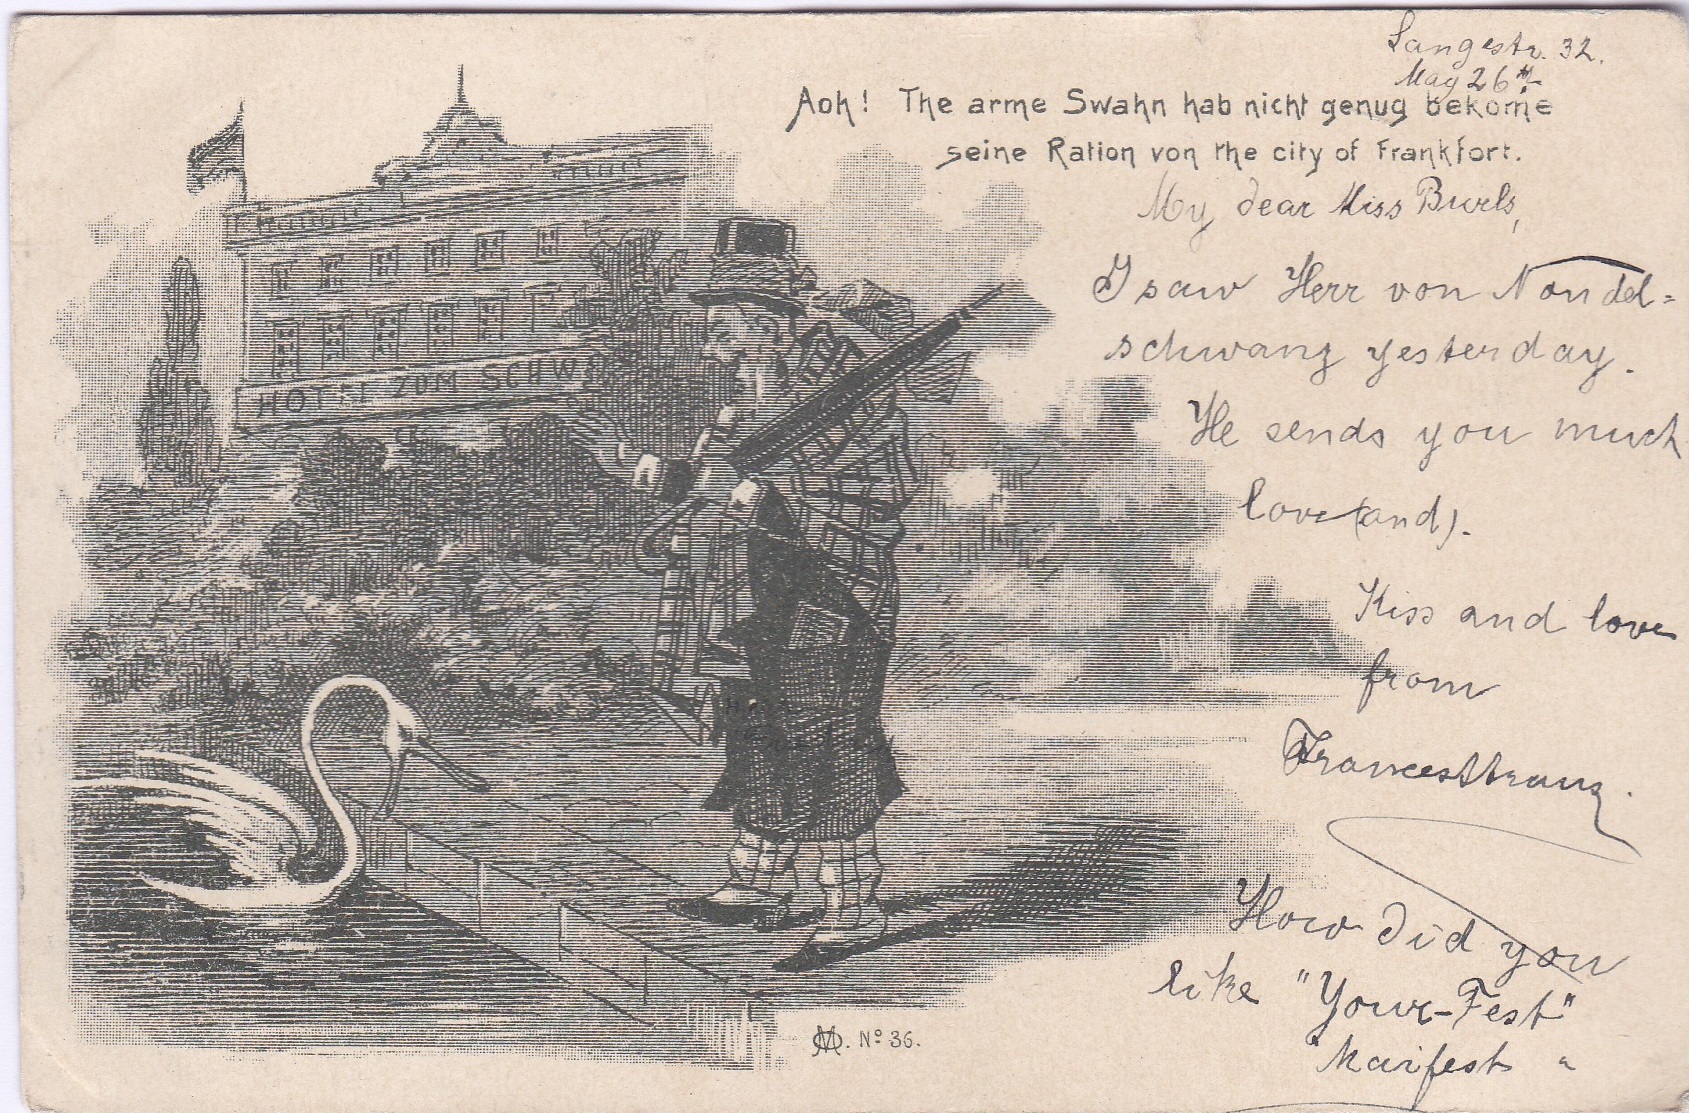 Langestr. 32.
May 26th
Aoh! The arme Swahn hab nicht genug bekome
seine Ration von the city of Frankfort.
My dear Miss Burls,
I saw Herr von Nondel=
schwanz yesterday.
He sends you much
love (and).
Kiss and love
from
How did you
like "Your-Fest"
"Maifest "
HOTEL ZUM SCHW
No 36.